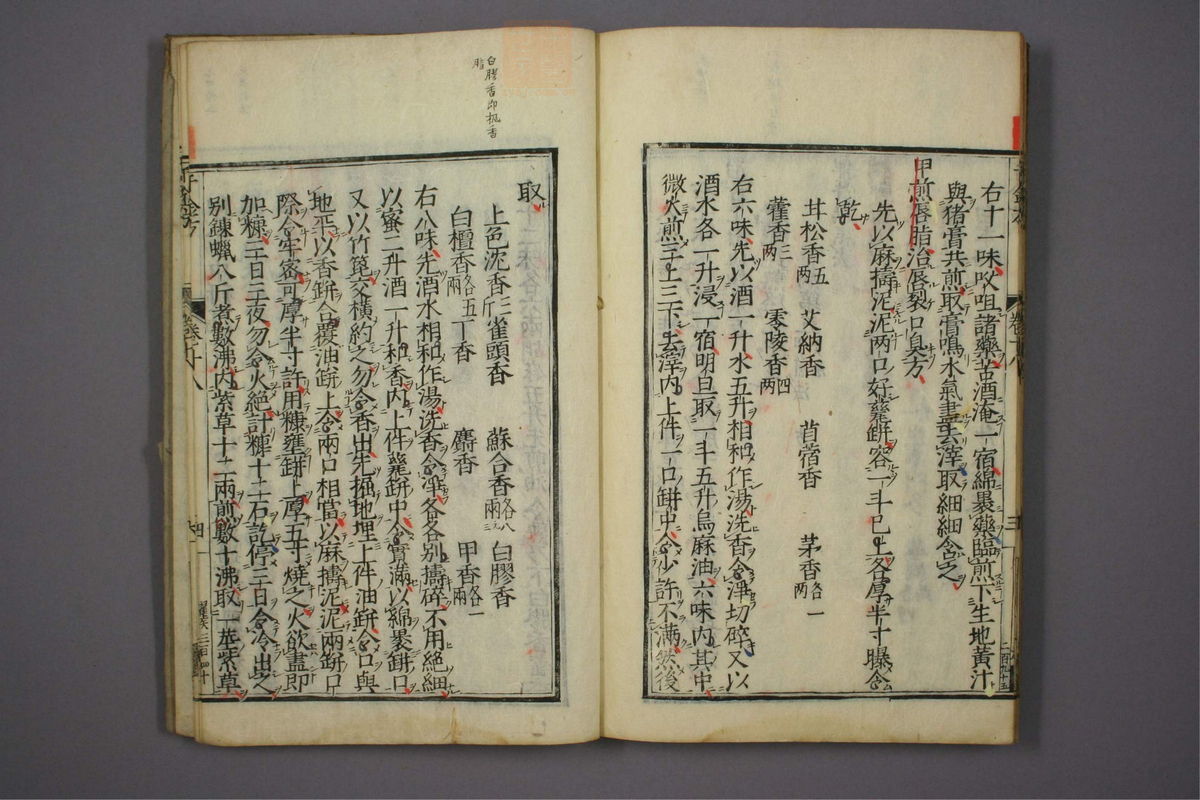 右十一味㕮咀諸藥苦酒淹一宿綿褁藥臨煎下生地黃汁
與猪膏共煎取膏鳴水氣盡去滓取細細含之
甲煎唇脂治唇裂口臭方
先以麻擣泥泥兩口好瓷缾容一斗已上各厚半寸曝令
乾
甘松香五兩 艾納香 苜蓿香 茅香各一兩
藿香三兩 零陵香四兩
右六味先以酒一升水五升相和作湯洗香令淨切碎又以
酒水各一升浸一宿明旦取一斗五升烏麻油六味內其中
微火煎三上三下去滓內上件一口缾中令少許不滿然後
取
上色沈香三斤 雀頭香 蘇合香各八兩三 白膠香
白檀香各五兩 丁香 麝香 甲香各一兩
右八味先酒水相和作湯洗香令淨各各別擣碎不用絕細
以蜜二升酒一升和香內上件瓷缾中令實滿以綿褁缾口
又以竹篦交橫約之勿令香出先掘地埋上件油缾令口與
地平以香缾合覆油缾上令兩口相當以麻擣泥泥兩缾口
際令牢密可厚半寸許用糠壅缾上厚五寸燒之火欲盡即
加糠三日三夜勿令火絕計糠十二石訖停三日令冷出之
別鍊蠟八斤煮數沸內紫草十二兩煎數十沸取一莖紫草
白膠香即枫香
脂
卷六十八
三
四